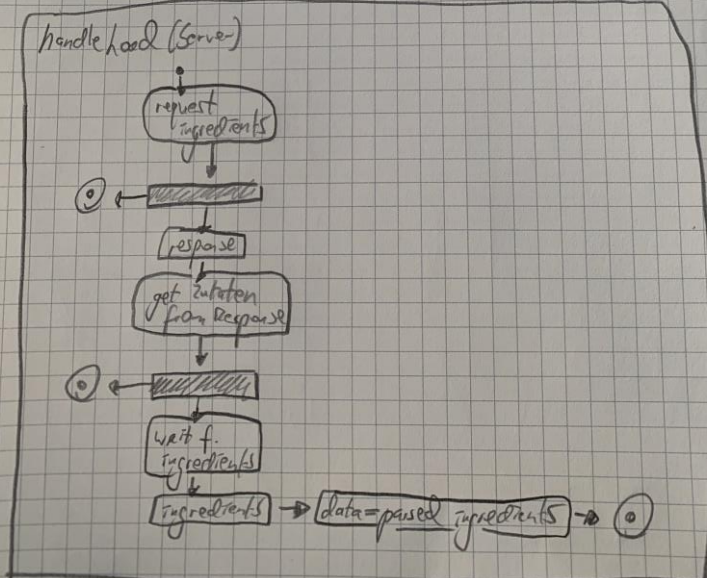 handle Load (Server)
request
ingredients
response
get Zutaten
from Response
wait f.
ingredients
ingredients
data=parsed ingredients